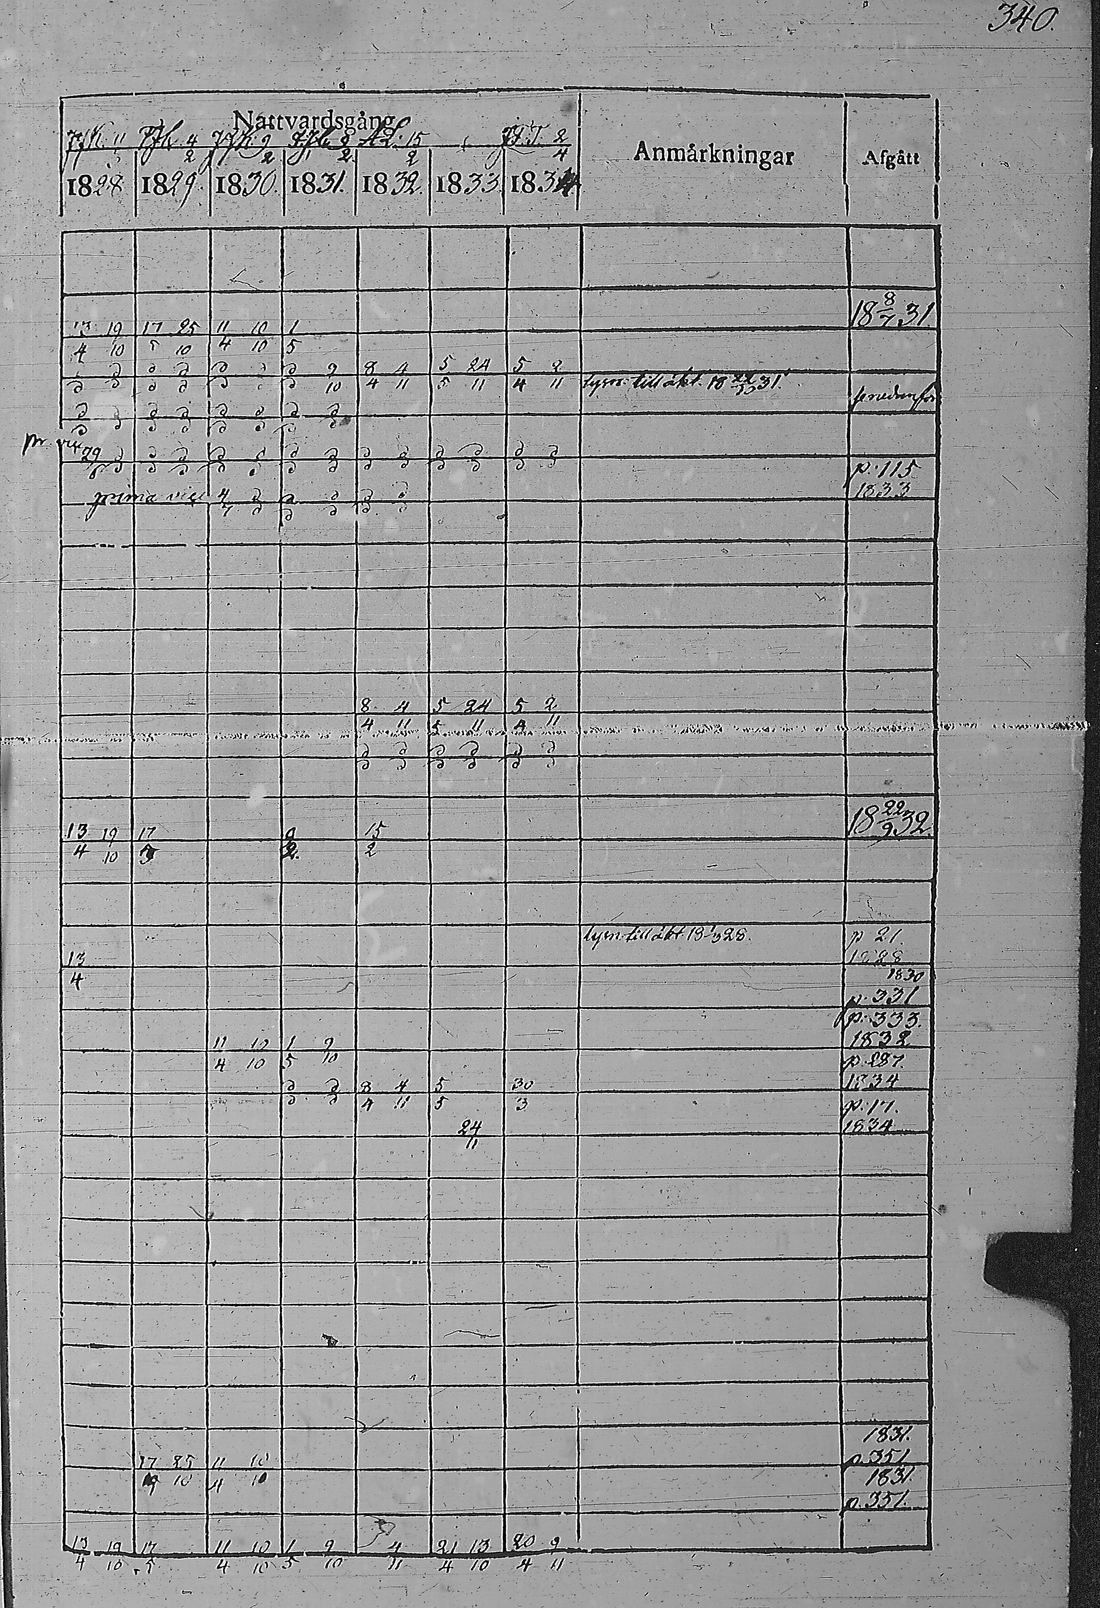 340.
Nattvardsgång
Anmårkningar
Afgått
1828 1829. 1830. 1831. 1832. 1833 1834
18 8/7 31.
13/4 19/10 17/5 25/10 11/4 10/10 1/5
d d d d d d d 9/10 8/4 4/11 5/5 24/11 5/4 2/11 lysn: till äkt. 18 22/10 31.
d d d d d d d d
29 d d d d d d d d d d d d d
p. 115
prima vice 4/7 d d d d d
1833
8/4 4/11 5/5 24/11 5/4 2/11
d d d d d d
18 22/9 32
13/4 19/10 17/5 9/2. 15/2
lysn: till äkt 18 1/3 28.
p 21.
1828
13/4
1830
p. 331
p. 333.
11/4 10/10 1/5 9/10
1832
p. 287.
d d 8/4 4/11 5/5 30/3
1834
p. 17.
24/11
1834
1831.
17/5 25/10 11/4 10/10
p. 351
1831.
p. 351.
13/4 19/10 17/5 11/4 10/10 1/5 9/10 4/11 21/4 13/10 20/4 9/11